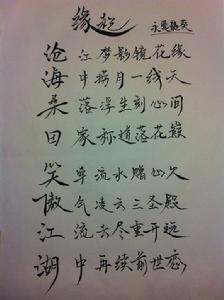 缘起
永爱龍葵
沧 江梦影镜花缘
海 中捞月一线天
桑 落浮生刻心间
田 家称道落花缘
笑 牵流水赠仙欠
傲 气凌云三圣殿
江 流云尽重开
湖 中再续前世恋